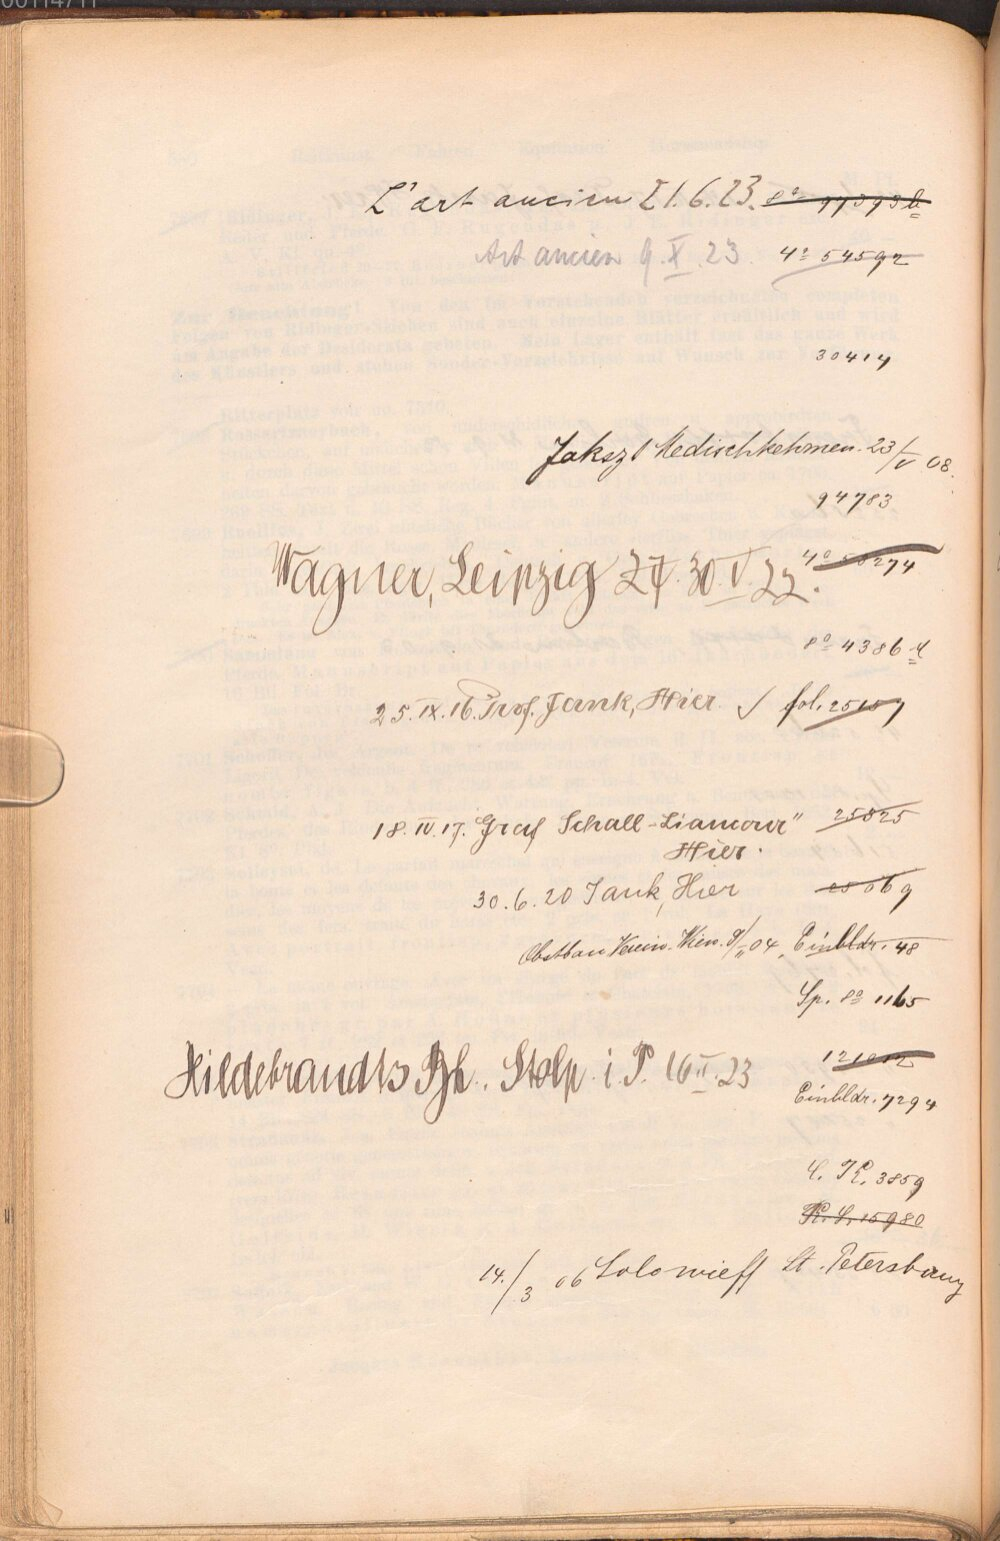 00114711
L'art ancien 21.6.23. 8° 97393 b
Art ancien 9.X.23. 4° 54592
30414
Jaksz Medischkehmen 23/V 08.
94783
Wagner, Leipzig 27. 30.V.22. 4° 58274
8° 4386 d
25.IX.16. Prof. Jank, Hier. ✓ fol. 25157
18.IV.17. Graf Schall-Riaucour" 25825
Hier.
30.6.20 Jank, Hier 25069
Obstbau Verein. Wien. 9/II 04, Einbldr. 48
Sp. 8° 1165
Hildebrandts Bh. Stolp i. P. 16.II.23 121012
Einbldr. 7294
C. K. 3859
K. L. 15980
14./3 06 Solowieff St. Petersburg